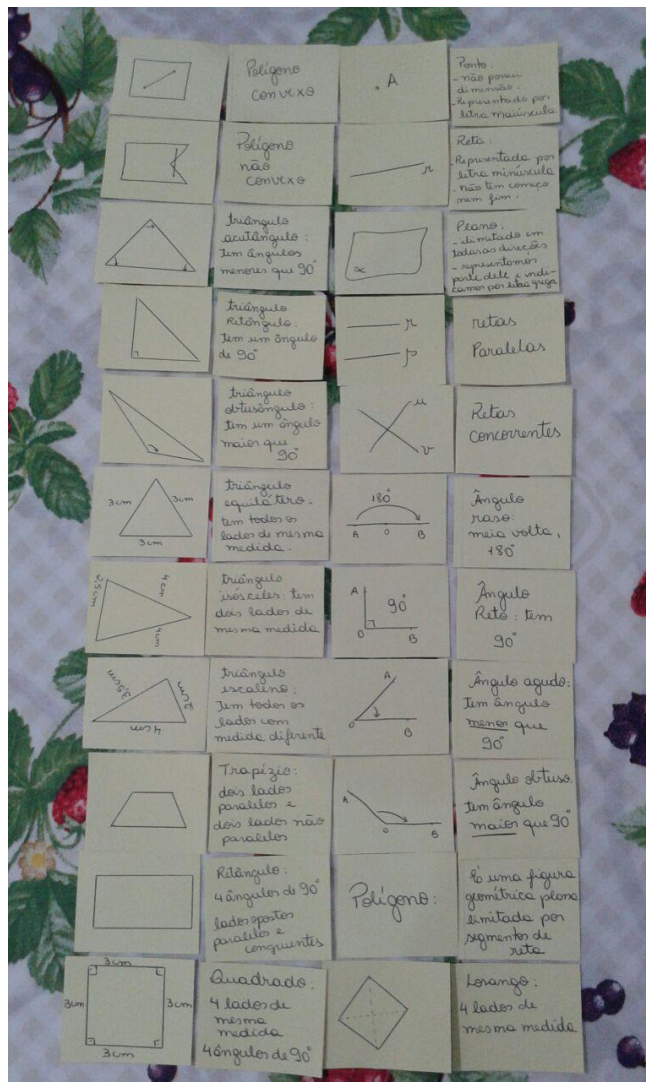 Polígono
convexo
. A
Ponto:
- não possui
dimensão.
- Representado por
letra maiúscula
Polígono
não
convexo
r
Reta:
- Representada por
letra minúscula
- não tem começo
nem fim.
triângulo
acutângulo:
tem ângulos
menores que 90°
α
Plano:
- ilimitado em
todas as direções
- representamos
parte dele e indi-
camos por letra grega
triângulo
Retângulo:
tem um ângulo
de 90°
r
p
retas
Paralelas
triângulo
obtusângulo:
tem um ângulo
maior que
90°
u
v
Retas
concorrentes
3cm
3cm
3cm
triângulo
equilátero:
tem todos os
lados de mesma
medida.
180°
A O B
Ângulo
raso:
meia volta,
180°
2,5cm
4cm
4cm
triângulo
isósceles: tem
dois lados de
mesma medida
A
90°
O B
Ângulo
Reto: tem
90°
3,5cm
2cm
4cm
triângulo
escaleno:
Tem todos os
lados com
medida diferente
A
O B
Ângulo agudo:
tem ângulo
menor que
90°
Trapézio:
dois lados
paralelos e
dois lados não
paralelos
A
O B
Ângulo obtuso:
tem ângulo
maior que 90°
Retângulo:
4 ângulos de 90°
lados opostos
paralelos e
congruentes
Polígono:
É uma figura
geométrica plana
limitada por
segmentos de
reta
3cm
3cm
3cm
3cm
Quadrado:
4 lados de
mesma
medida
4 ângulos de 90°
Losango:
4 lados de
mesma medida